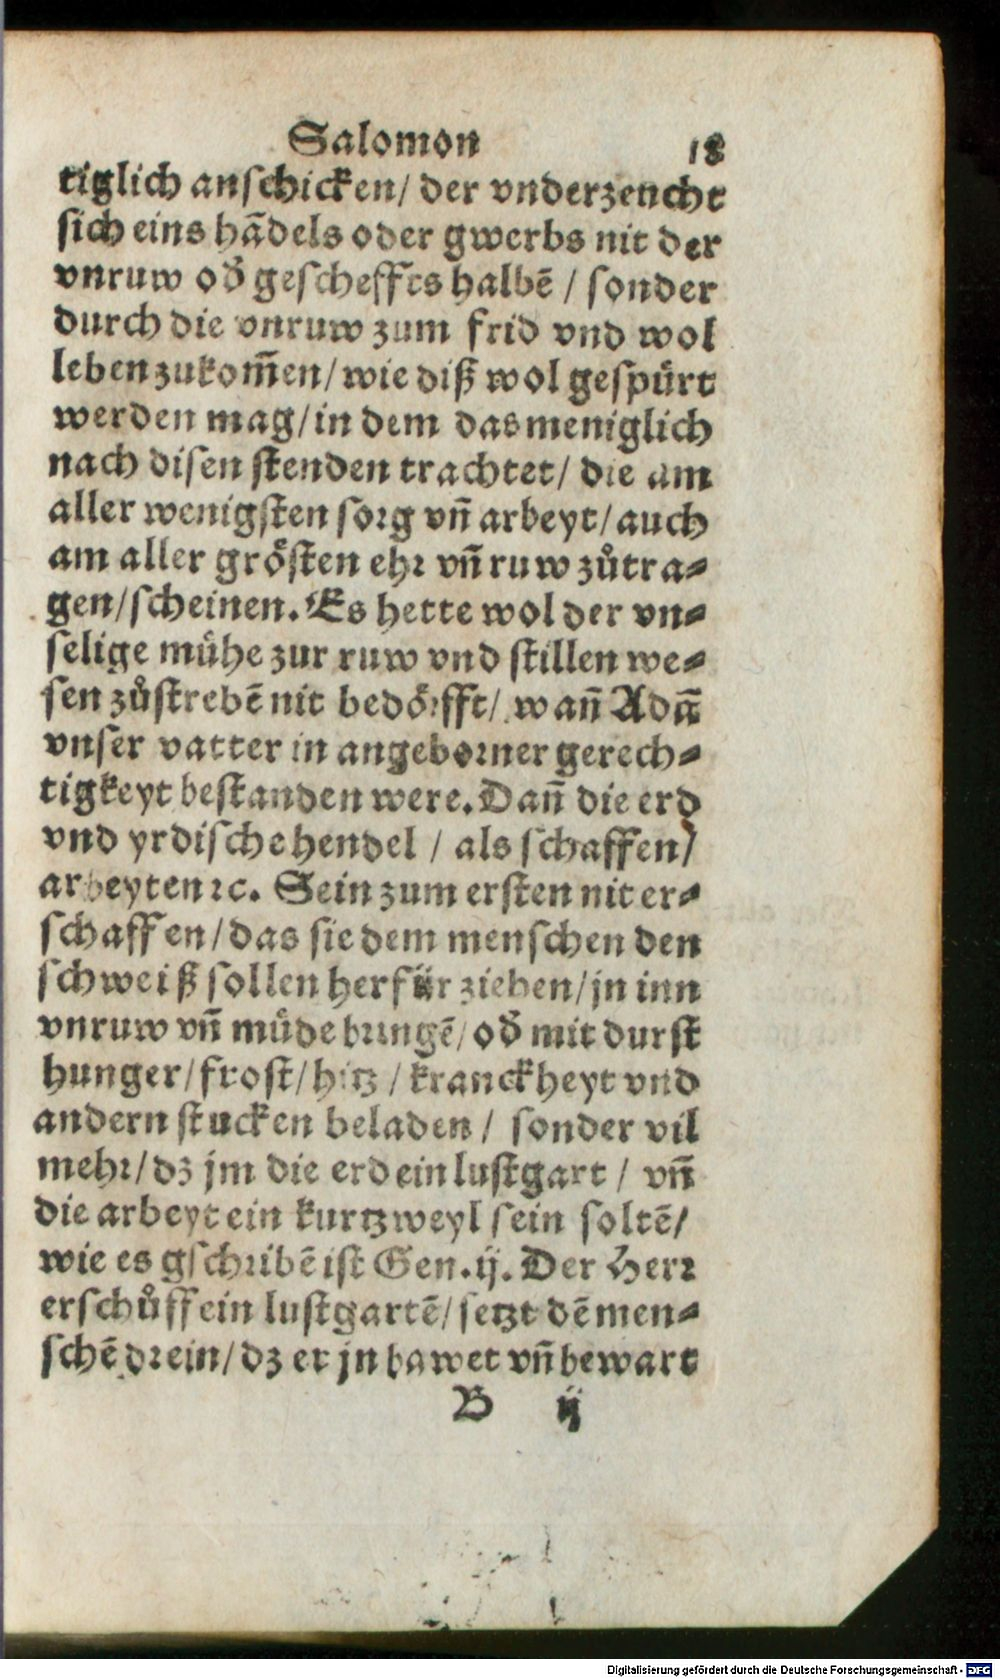 Salomon 18
tiglich anschicken/ der vnderzeucht
sich eins hãdels oder gwerbs nit der
vnruw od̕ gescheffts halbẽ / sonder
durch die vnruw zum frid vnd wol
leben zukom̃en/ wie diß wol gespuͤrt
werden mag/ in dem das meniglich
nach disen stenden trachtet/ die am
aller wenigsten sorg vñ arbeyt/ auch
am aller groͤsten ehr vñ ruw zuͦtra-
gen/ scheinen. Es hette wol der vn-
selige muͤhe zur ruw vnd stillen we-
sen zuͦstrebẽ nit bedoͤrfft/ wañ Adã
vnser vatter in angeborner gerech-
tigkeyt bestanden were. Dañ die erd
vnd yrdische hendel / als schaffen/
arbeyten ꝛc. Sein zum ersten nit er-
schaffen/ das sie dem menschen den
schweiß sollen herfür ziehen/ jn inn
vnruw vñ muͤde bringẽ/ od̕ mit durst
hunger/ frost/ hitz / kranckheyt vnd
andern stucken beladen / sonder vil
mehr/ dz jm die erd ein lustgart / vñ
die arbeyt ein kurtzweyl sein soltẽ/
wie es gschribẽ ist Gen. ij. Der Herr
erschuͦff ein lustgartẽ/ setzt dẽ men-
schẽ drein/ dz er jn bawet vñ bewart
B ij
Digitalisierung gefördert durch die Deutsche Forschungsgemeinschaft - DFG